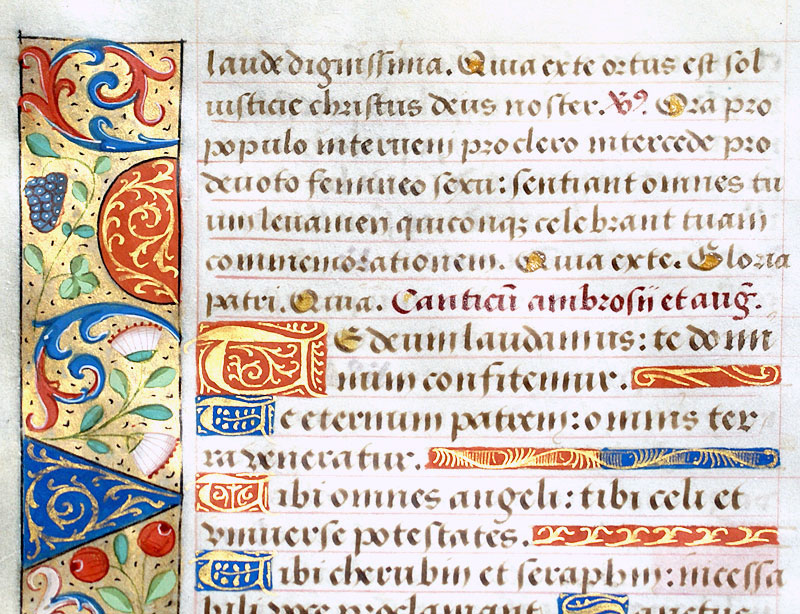 laude dignissima. Quia ex te ortus est sol
iusticie christus deus noster. V9. Ora pro
populo interueni pro clero intercede pro
deuoto femineo sexu: sentiant omnes tu
um leuamen quicunq; celebrant tuam
commemorationem. Quia ex te. Gloria
patri. Quia. Canticū ambrosii et aug̃.
Te deum laudamus: te domi
num confitemur.
Te eternum patrem: omnis ter
ra veneratur.
Tibi omnes angeli: tibi celi et
vniuerse potestates.
Tibi cherubin et seraphin: incessa
bili voce proclamant. Sanctus